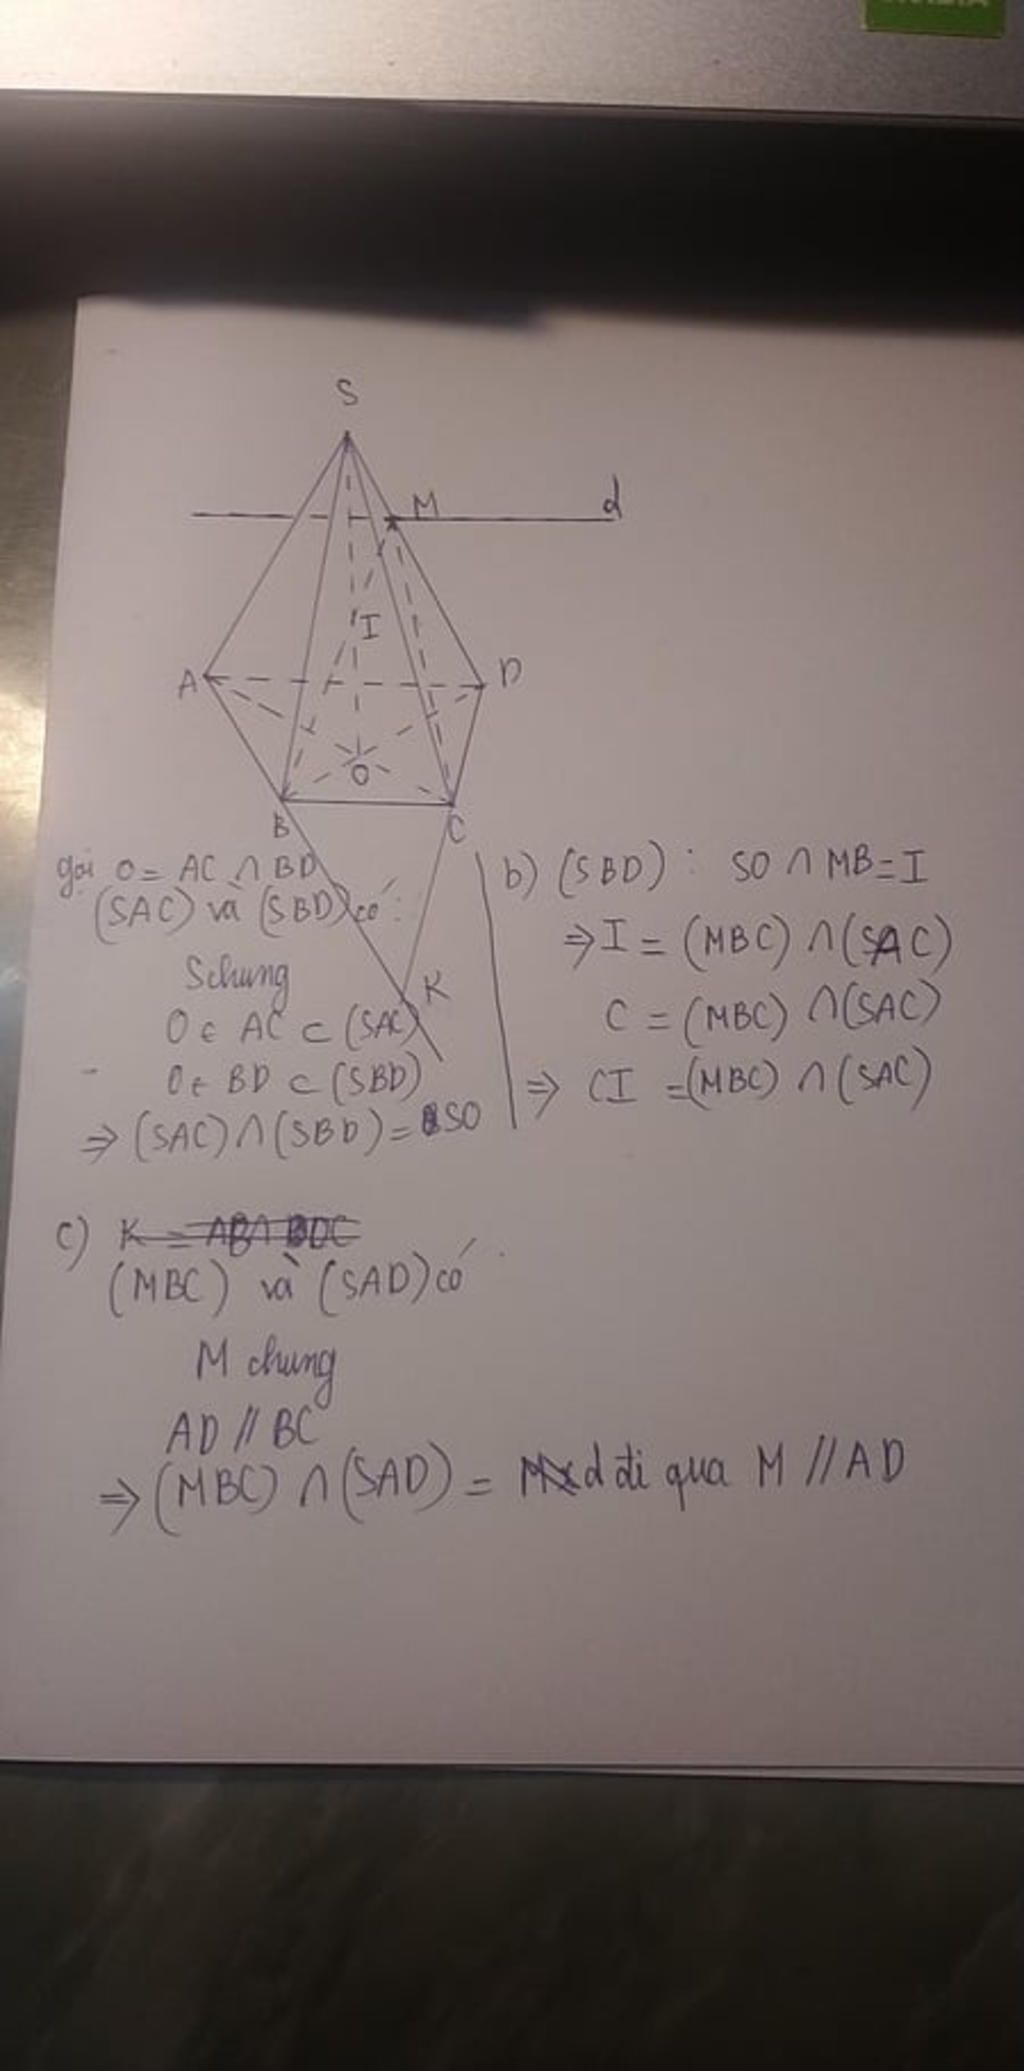 S
M
d
I
A
D
O
B
C
K
gọi O = AC ∩ BD
(SAC) và (SBD) có:
S chung
O ∈ AC ⊂ (SAC)
O ∈ BD ⊂ (SBD)
⇒ (SAC) ∩ (SBD) = SO
b) (SBD): SO ∩ MB = I
⇒ I = (MBC) ∩ (SAC)
C = (MBC) ∩ (SAC)
⇒ CI = (MBC) ∩ (SAC)
c) K = AB ∩ DC
(MBC) và (SAD) có
M chung
AD // BC
⇒ (MBC) ∩ (SAD) = Mx d đi qua M // AD